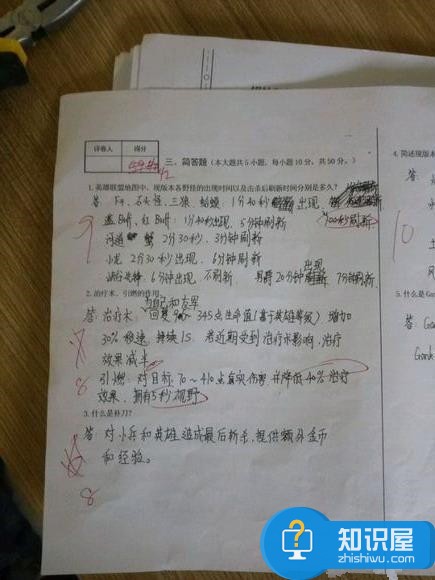 评卷人 得分
三、简答题（本大题共5小题，每小题10分，共50分。）
1.英雄联盟地图中，现版本各野怪的出现时间以及击杀后刷新时间分别是多久？
答 F4、石头怪、三狼、蛤蟆：1分40秒 出现，
100秒刷新
蓝Buff、红Buff：1分40秒出现，5分钟刷新
河道 蟹 2分30秒，3分钟刷新
小龙 2分30秒出现，6分钟刷新
峡谷先锋 6分钟出现 不刷新 20分钟 出现 7分钟刷新
9
2.治疗术、引燃的作用
答：治疗术：为自己和友军回复90~345点生命值（基于英雄等级）增加
30%移速，持续1S。若近期受到治疗术影响，治疗
效果减半
引燃：对目标70~410点真实伤害并降低40%治疗
效果，拥有5秒视野
8
3.什么是补刀？
答：对小兵和英雄造成最后斩杀，提供额外金币
和经验。
8
4.简述现版本
答：
10
5.什么是Gan
答：Gank
Gank
知识屋
zhishiwu.com